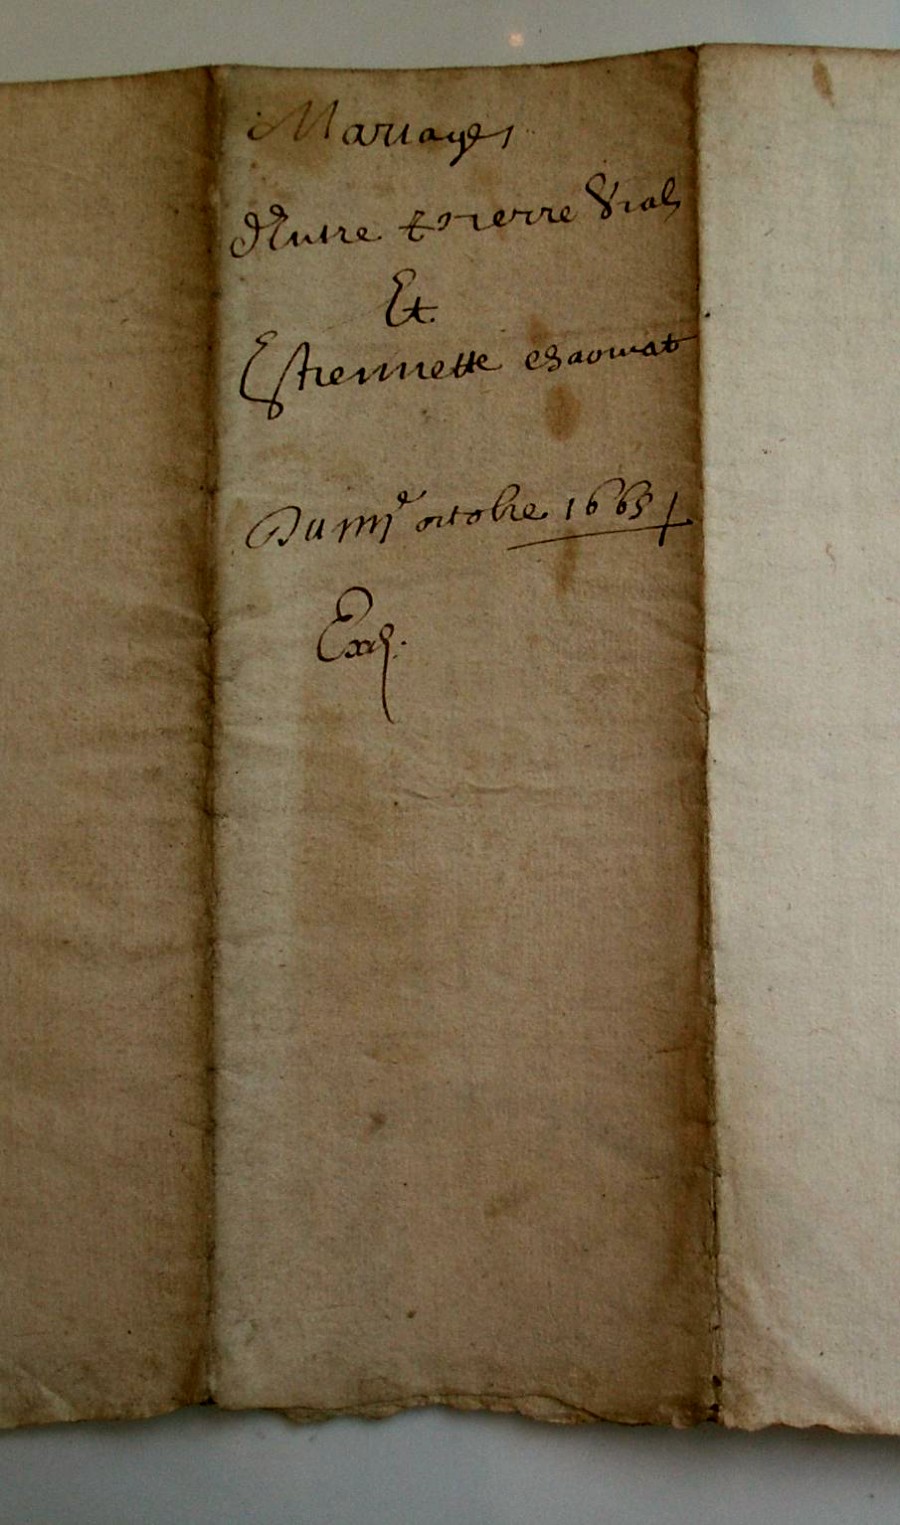 Mariages
d'Entre Pierre Vial
Et
Estiennette
Du iiij.e octobre 1663
Exd.